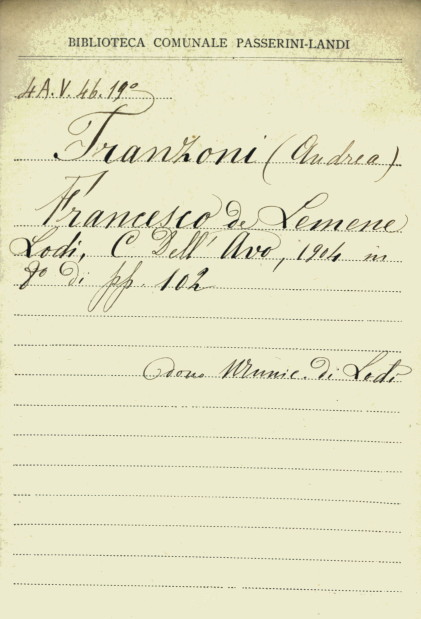 BIBLIOTECA COMUNALE PASSERINI-LANDI
4A.V.46.19º
Franzoni (Andrea)
Francesco de Lemene
Lodi, C Dell' Avo, 1904 in
8º di pp. 102
dono Munic. di Lodi